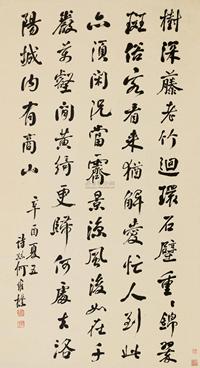 樹深藤老竹迴環石壁重〻錦翠
斑俗客看來猶解愛忙人到此
亦須閑況當霽景涼風後如在千
巖萬壑間黃綺更歸何處去洛
陽城內有高山
辛酉夏五
詩孫何維樸